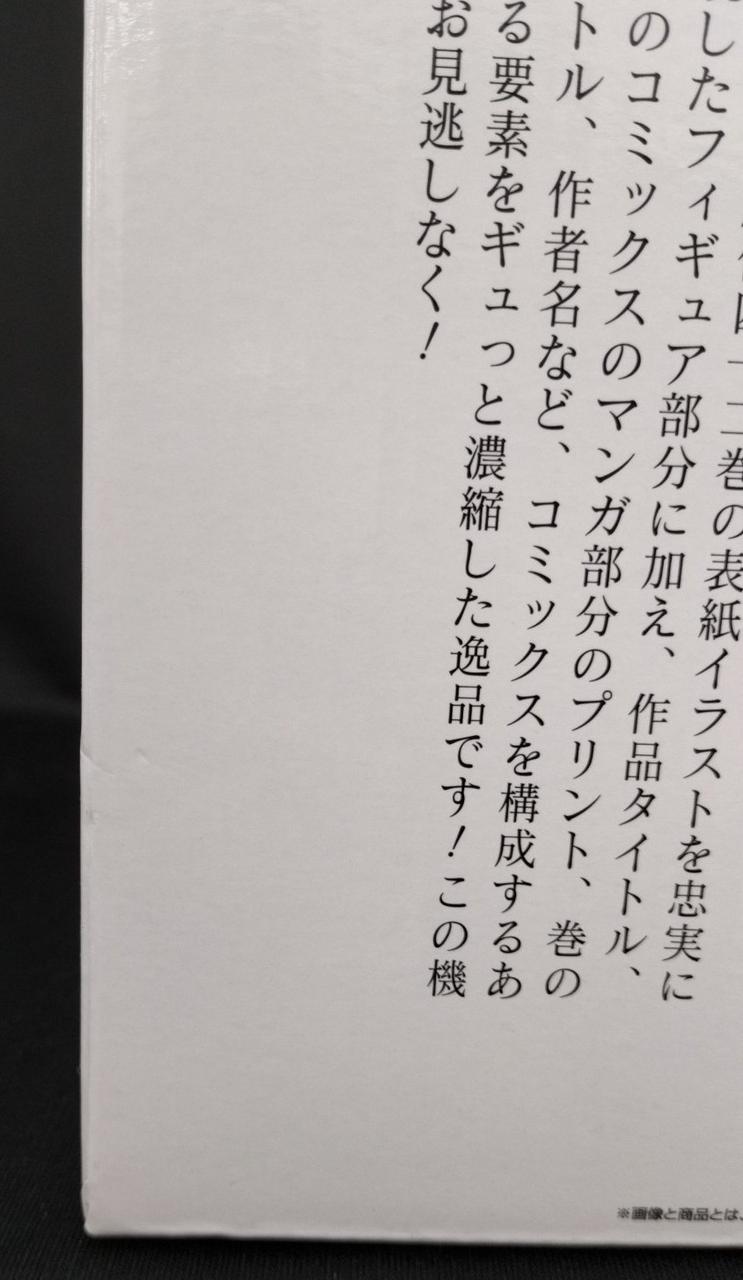 四十二巻の表紙イラストを忠実に
したフィギュア部分に加え、作品タイトル、
のコミックスのマンガ部分のプリント、巻の
トル、作者名など、コミックスを構成するあ
る要素をギュっと濃縮した逸品です！この機
お見逃しなく！
※画像と商品とは、